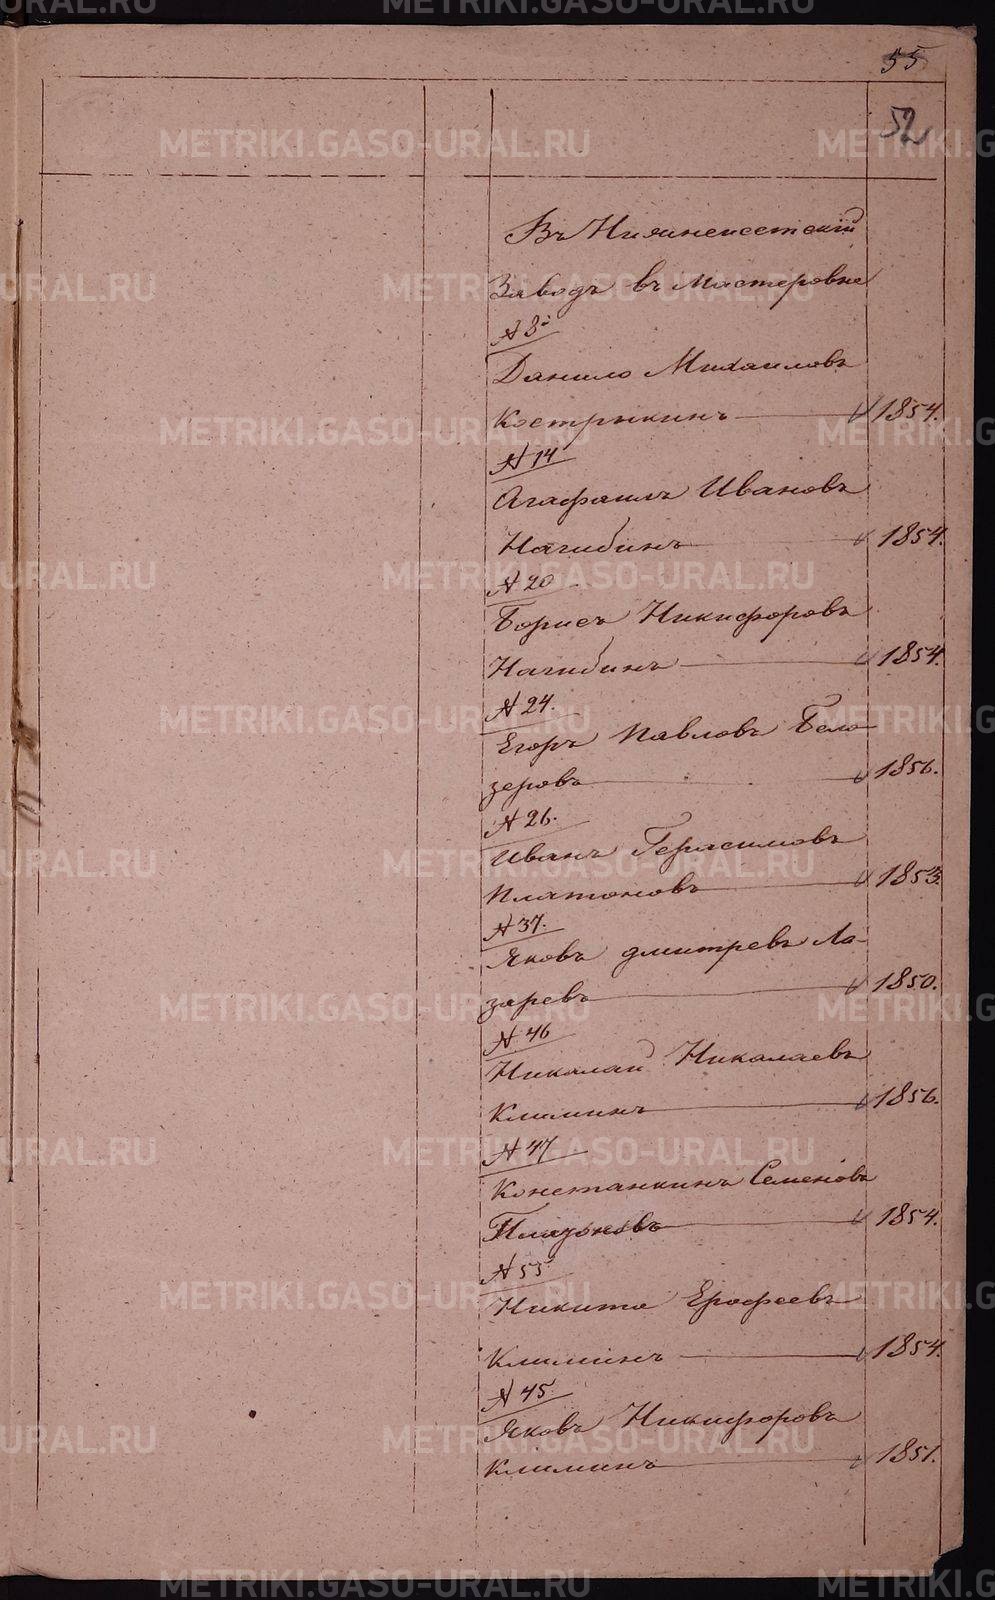 55
52
Въ Нижнеисетский
Заводъ въ мастеровые
№ 8й
Данило Михаиловъ
Кострыкинъ 1854.
№ 14
Агафаилъ Ивановъ
Нагибинъ 1854.
№ 20
Борисъ Никифоровъ
Нагибинъ 1854.
№ 24.
Егоръ Павловъ Бело-
зеровъ 1856.
№ 26.
Иванъ Герасимовъ
Платоновъ 1853.
№ 37.
Яковъ Дмитревъ Ла-
заревъ 1850.
№ 46
Николай Николаевъ
Климинъ 1856.
№ 47
Констанкинъ Семеновъ
1854.
№ 55
Никита Ерофеевъ
Климинъ 1854.
№ 45.
Яковъ Никифоровъ
Климинъ 1851.
METRIKI.GASO-URAL.RU